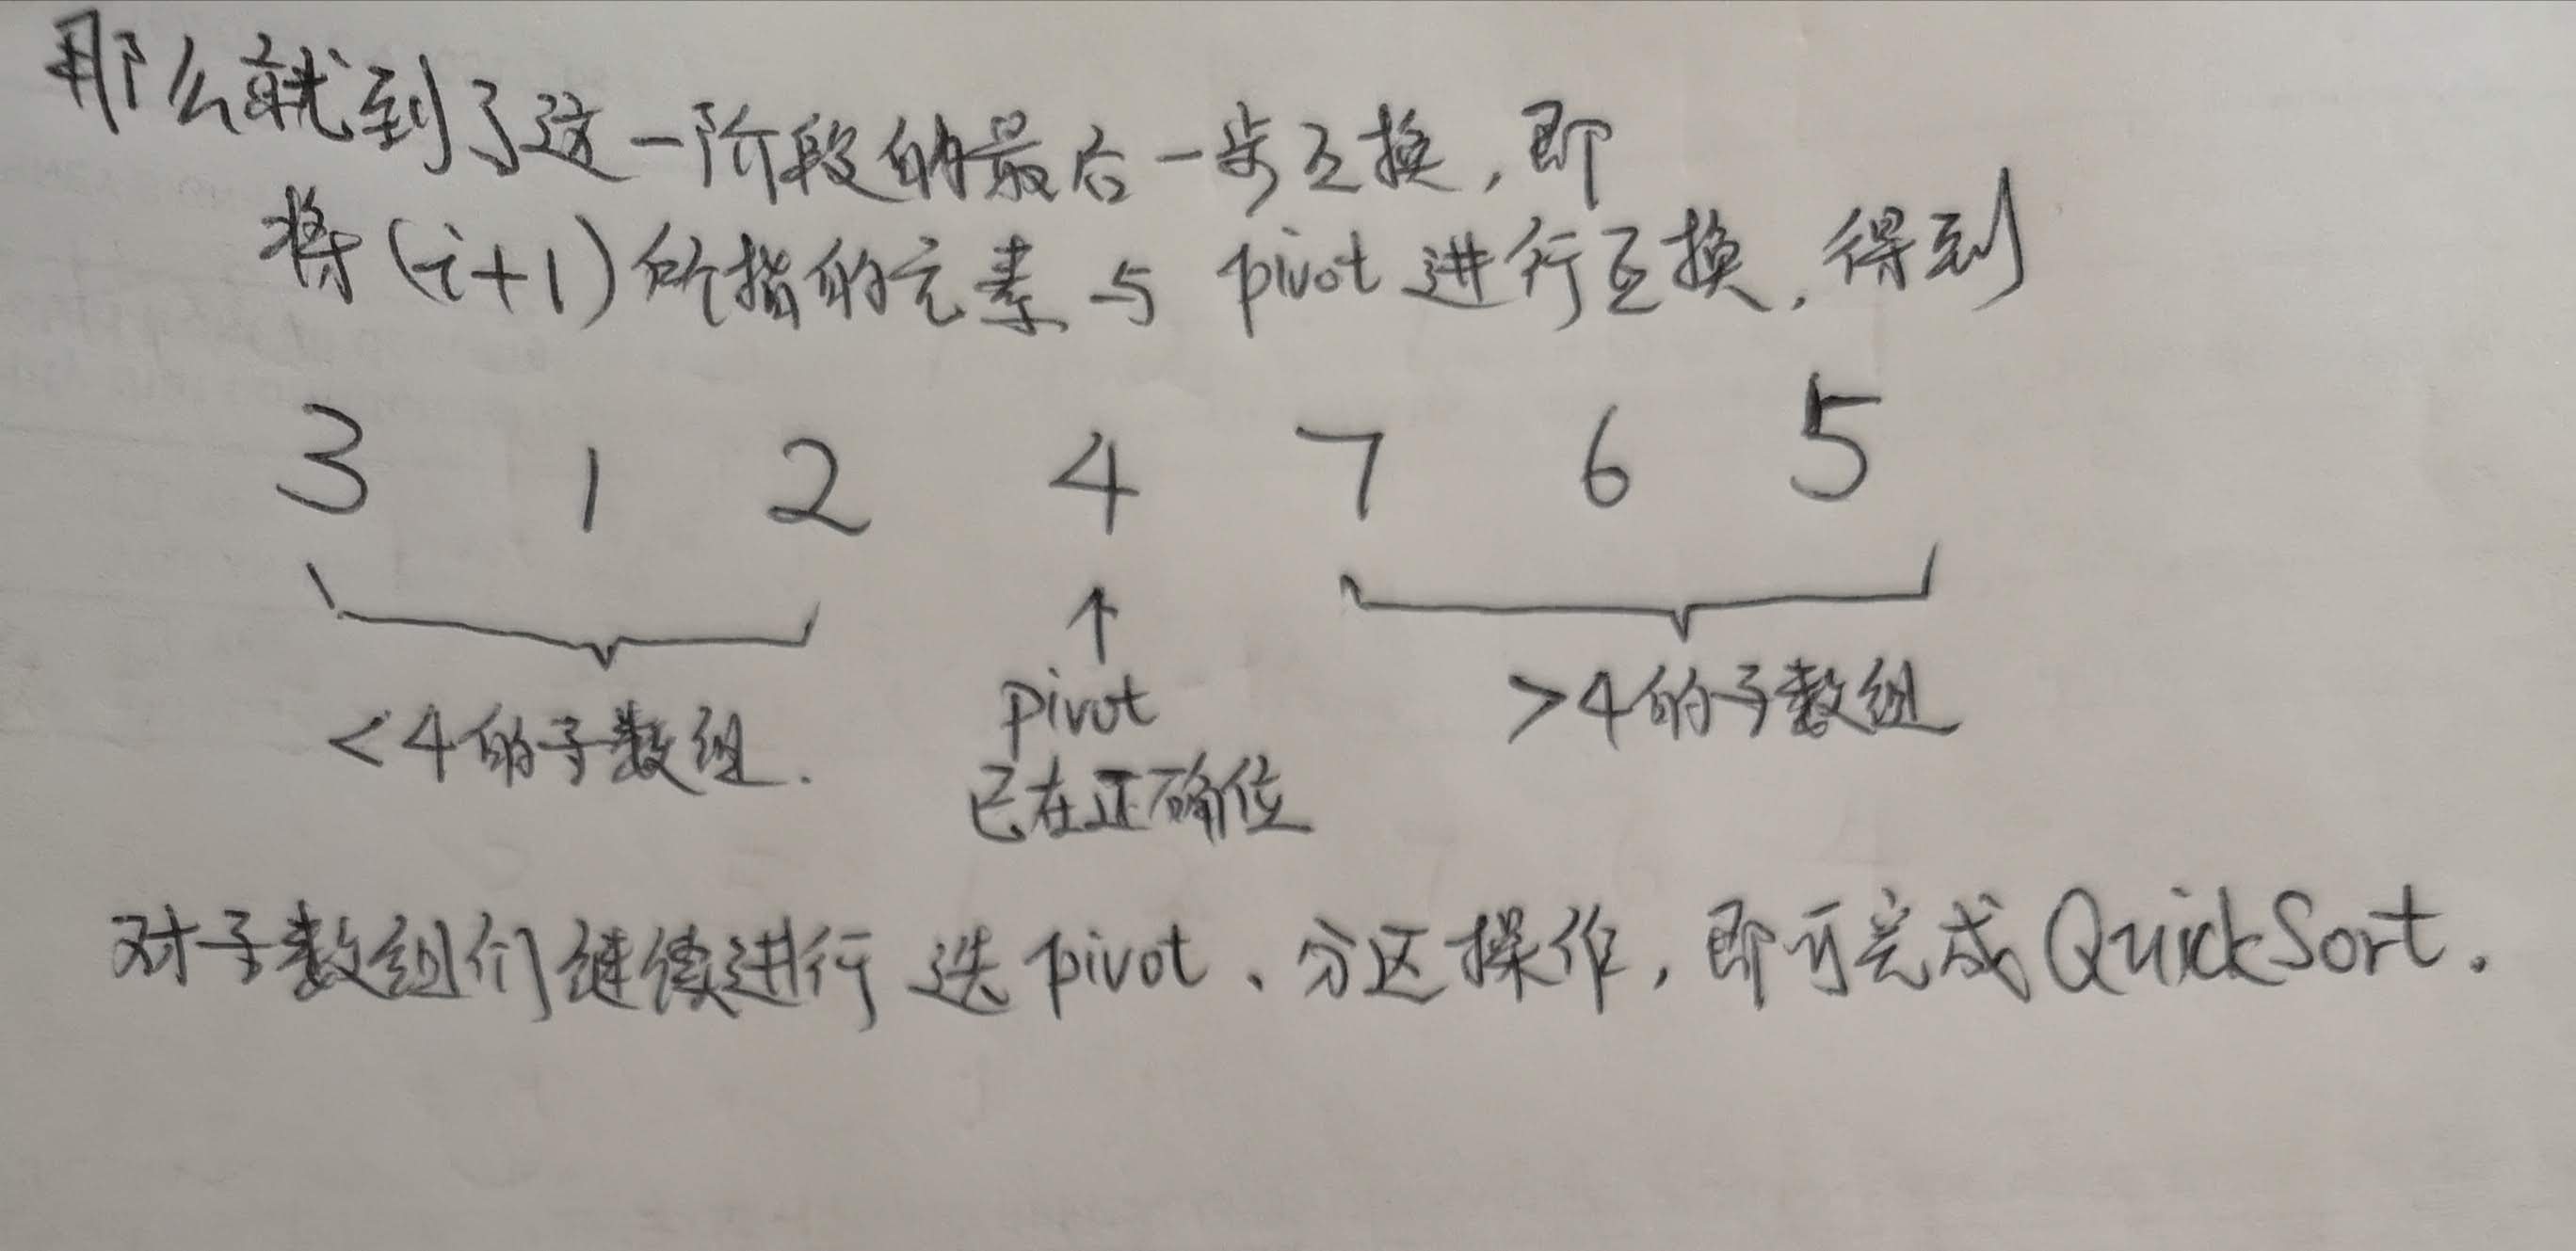 那么就到了这一阶段的最后一步互换，即
将(i+1)所指的元素与 pivot 进行互换，得到
3 1 2 4 7 6 5
<4的子数组. pivot >4的子数组
已在正确位
对子数组们继续进行 选 pivot、分区操作，即可完成 QuickSort.